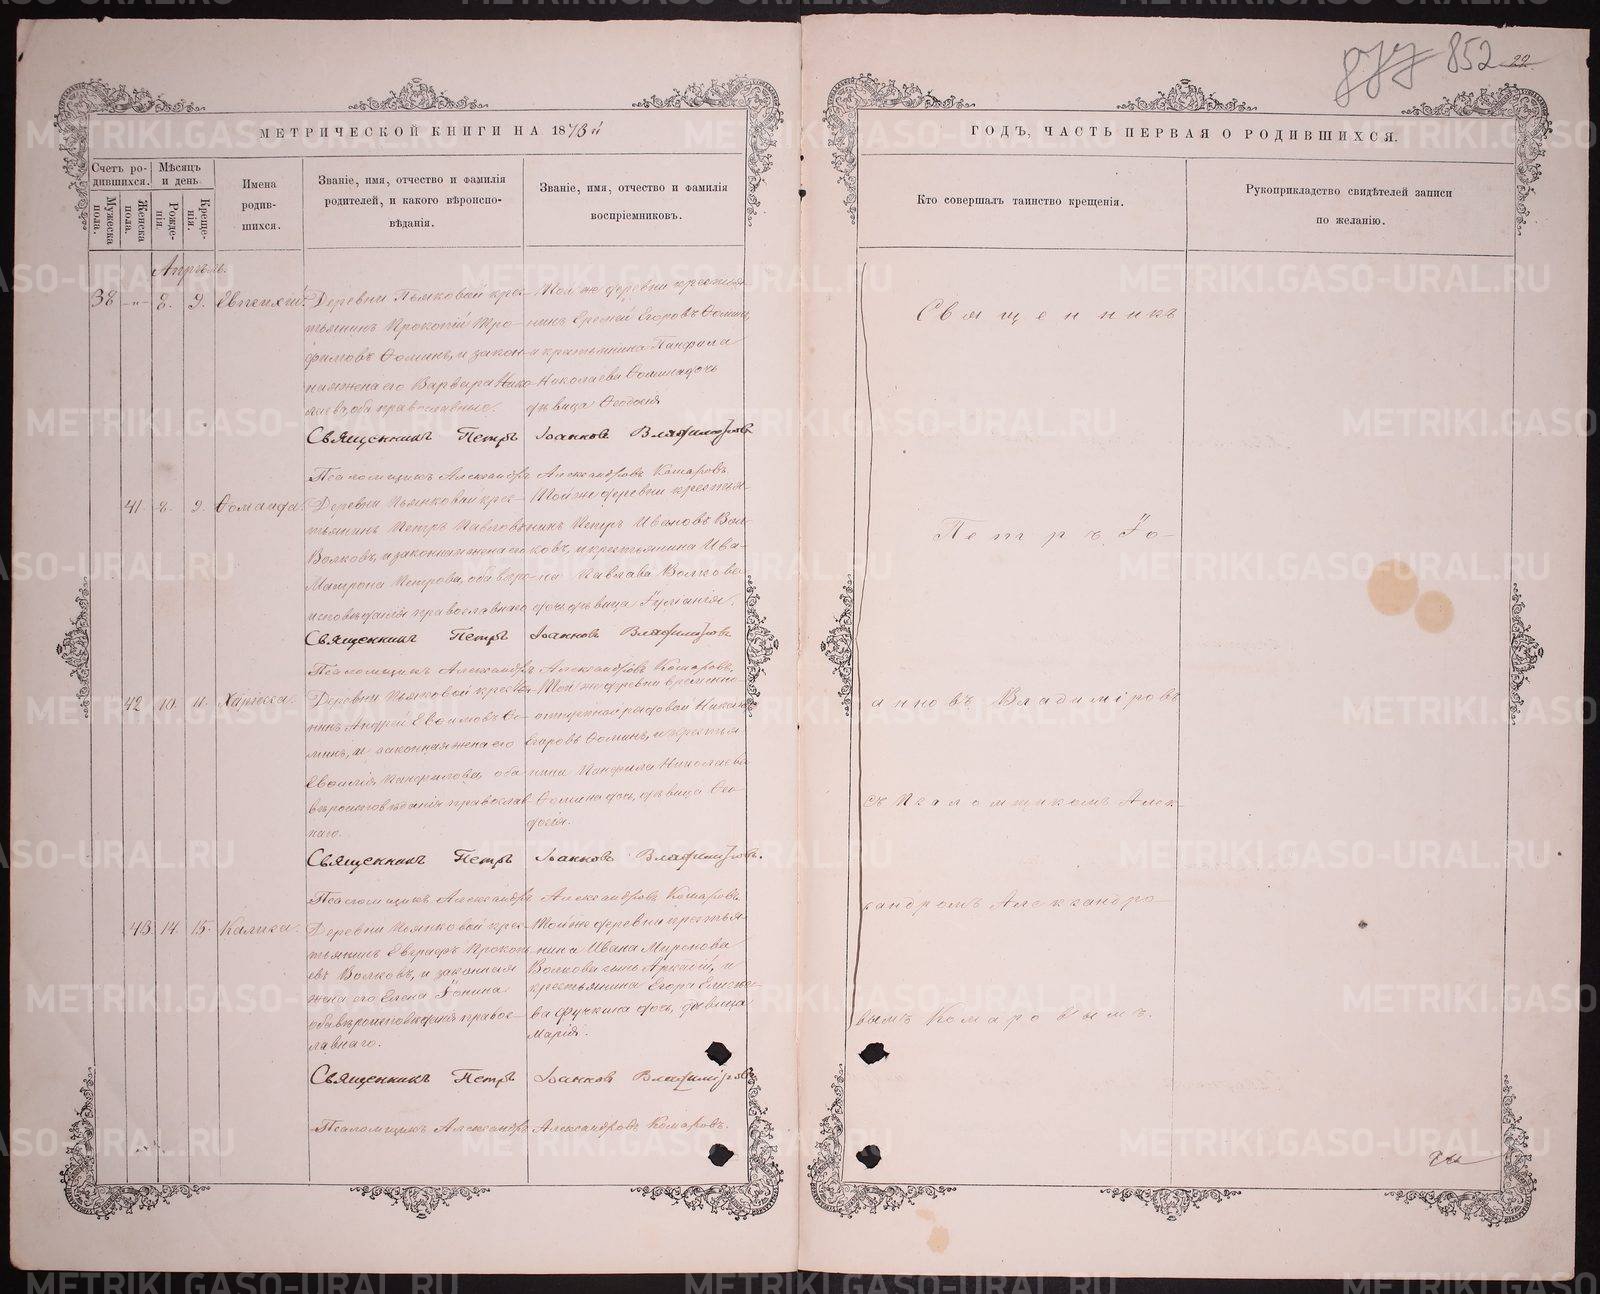 852 22
МЕТРИЧЕСКОЙ КНИГИ НА 1873й
ГОДЪ, ЧАСТЬ ПЕРВАЯ О РОДИВШИХСЯ.
Счетъ ро-
дившихся.
Мѣсяцъ
и день.
Мужеска
пола.
Женска
пола.
Рожде-
нія.
Креще-
нія.
Имена
родив-
шихся.
Званіе, имя, отчество и фамилія
родителей, и какого вѣроиспо-
вѣданія.
Званіе, имя, отчество и фамилія
воспріемниковъ.
Кто совершалъ таинство крещенія.
Рукоприкладство свидѣтелей записи
по желанію.
Апрѣль.
38 -„- 8. 9. Евпсихій.
Деревни Пьянковой крес-
тьянинъ Прокопій Тро-
фимовъ Ѳоминъ, и закон-
ная жена его Варвара Нико-
лаева, оба православные.
Той же деревни крестья-
нинъ Еремей Егоровъ Ѳоминъ,
и крестьянина Панфила
Николаева Ѳомина дочь
дѣвица Ѳеодосія
Священникъ Петръ Іоанновъ Владиміровъ
Псаломщикъ Александръ Александровъ Комаровъ.
41. 8. 9. Ѳомаида.
Деревни Пьянковой крес-
тьянинъ Петръ Павловъ
Волковъ, и законная жена его
Матрона Петрова, оба вѣро-
исповѣданія православнаго
Той же деревни крестья-
нинъ Петръ Ивановъ Вол-
ковъ, и крестьянина Ива-
на Павлова Волкова
дочь дѣвица Іуліанія.
Священникъ Петръ Іоанновъ Владиміровъ
Псаломщикъ Александръ Александровъ Комаровъ.
42 10. 11. Хариеса.
Деревни Пьянковой крестья-
нинъ Андрей Евѳимовъ Ѳо-
минъ, и законная жена его
Евѳимія Панфилова, оба
вѣроисповѣданія православ-
наго.
Той же деревни временно
отпускной рядовой
Егоровъ Ѳоминъ, и крестья-
нина Панфила Николаева
Ѳомина дочь, дѣвица Ѳео-
досія.
Священникъ Петръ Іоанновъ Владиміровъ.
Псаломщикъ Александръ Александровъ Комаровъ.
43. 14. 15. Калиса.
Деревни Пьянковой крес-
тьянинъ Евграфъ Прокопь-
евъ Волковъ, и законная
жена его Елена Іонина
оба вѣроисповѣданія правос-
лавнаго.
Той же деревни крестья-
нина Ивана Миронова
Волкова сынъ Аркадій, и
крестьянина Егора Елисѣе-
ва дочь, дѣвица
Марія.
Священникъ Петръ Іоанновъ Владиміровъ
Псаломщикъ Александръ Александровъ Комаровъ.
Священникъ
Петръ Іо-
анновъ Владиміровъ
съ Псаломщикомъ Алек-
сандромъ Александро-
вымъ Комаровымъ.
METRIKI.GASO-URAL.RU